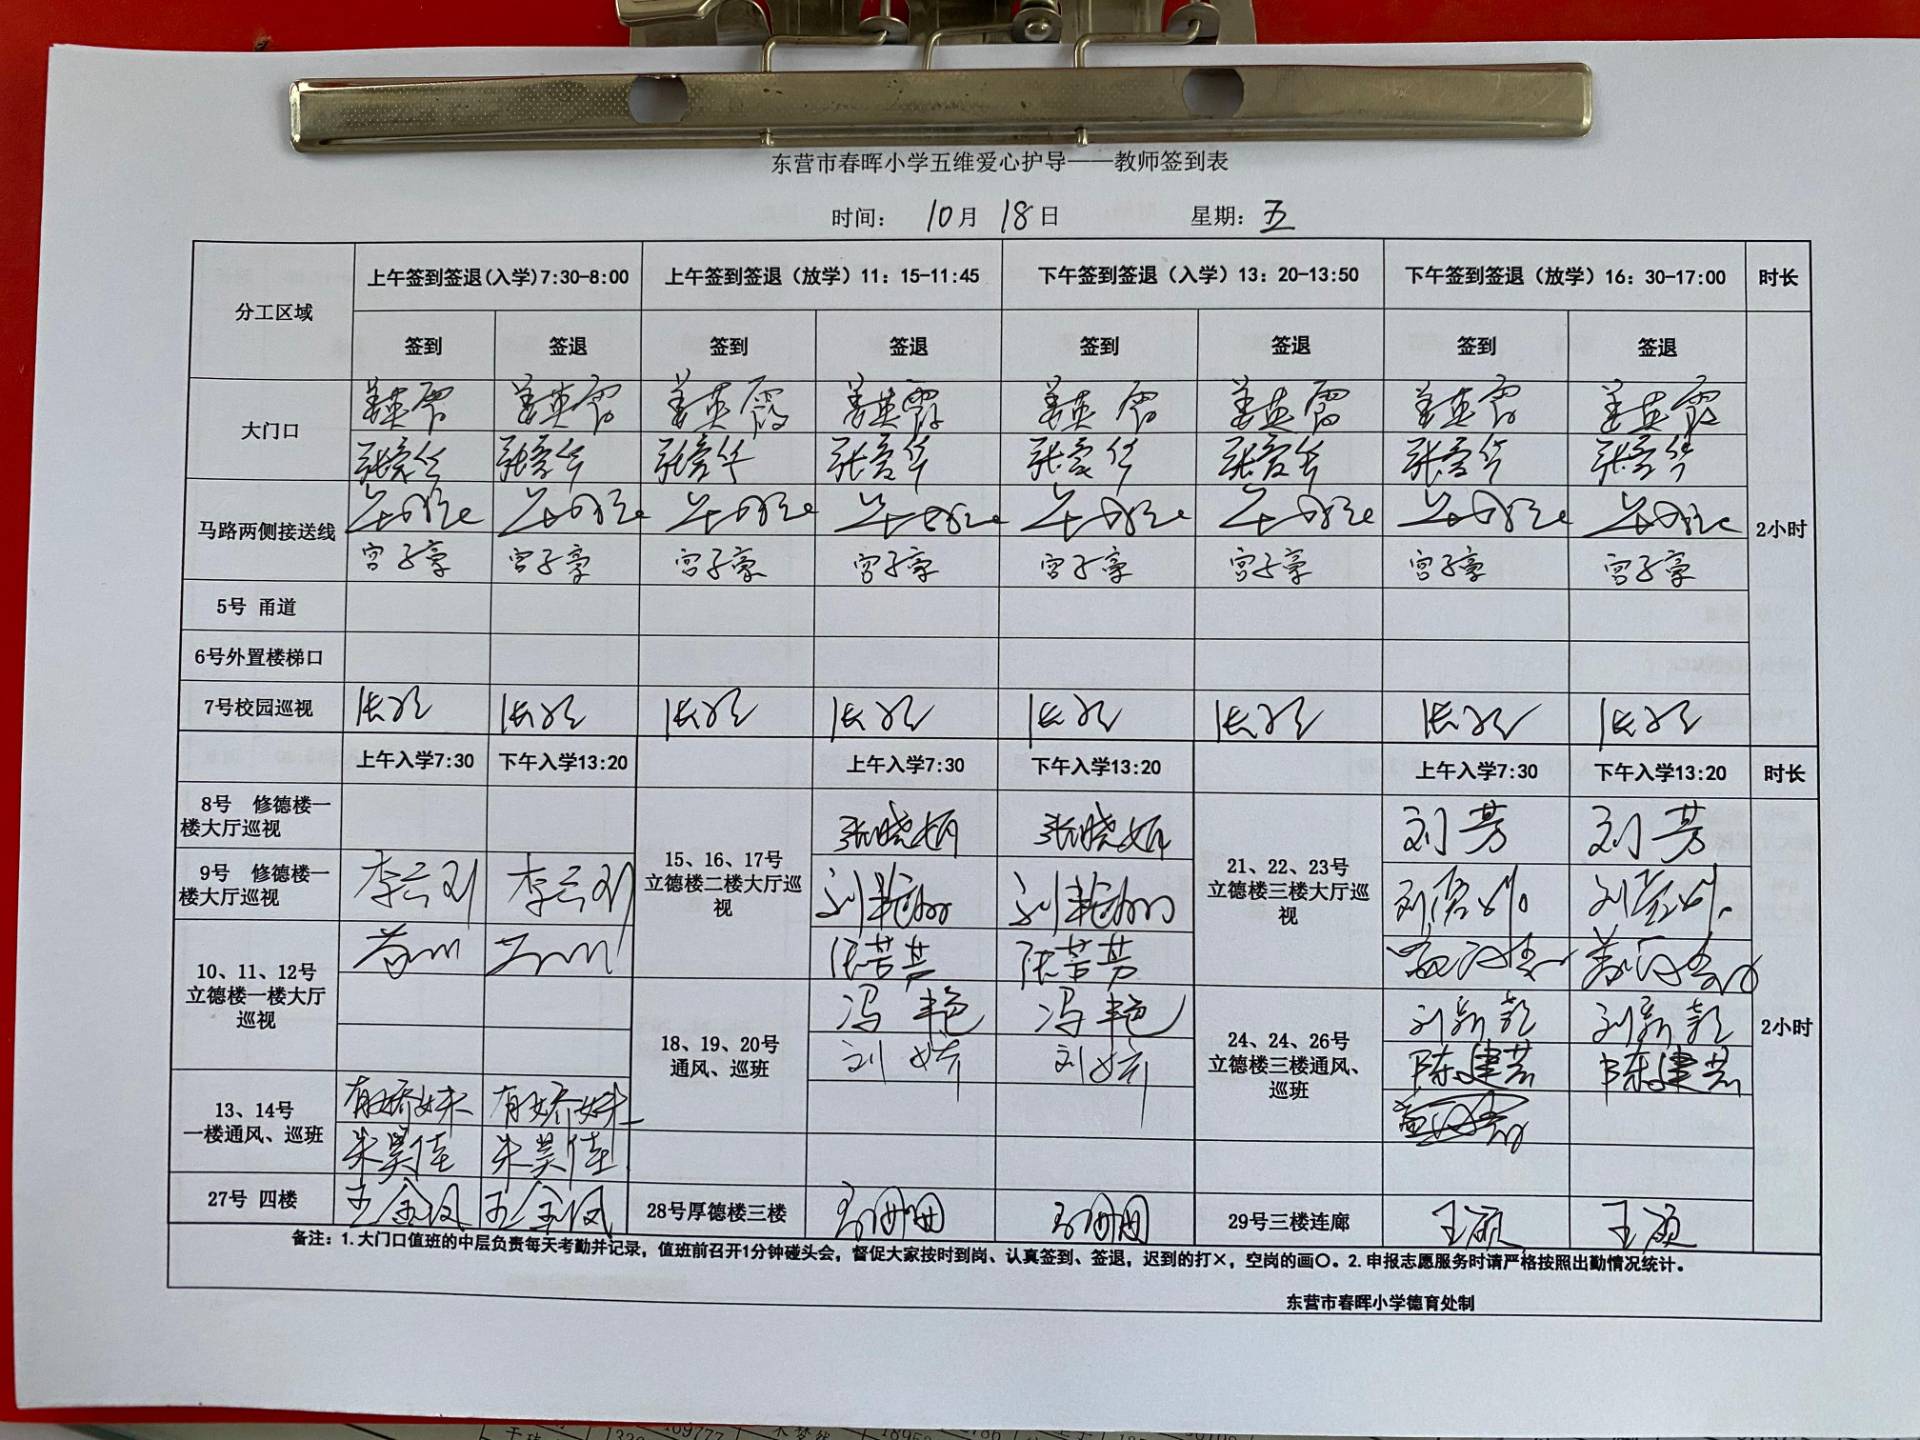 东营市春晖小学五维爱心护导——教师签到表
时间： 10月 18日 星期：五
分工区域 上午签到签退(入学)7:30-8:00 上午签到签退（放学）11：15-11:45 下午签到签退（入学）13：20-13:50 下午签到签退（放学）16：30-17:00 时长
签到 签退 签到 签退 签到 签退 签到 签退
大门口
姜英霞 姜英霞 姜英霞 姜英霞 姜英霞 姜英霞 姜英霞 姜英霞
张爱华 张爱华 张爱华 张爱华 张爱华 张爱华 张爱华 张爱华
马路两侧接送线 2小时
宫子豪 宫子豪 宫子豪 宫子豪 宫子豪 宫子豪 宫子豪 宫子豪
5号 甬道
6号外置楼梯口
7号校园巡视
上午入学7:30 下午入学13:20 上午入学7:30 下午入学13:20 上午入学7:30 下午入学13:20 时长
8号 修德楼一
楼大厅巡视
9号 修德楼一
楼大厅巡视
李云刘 李云刘
10、11、12号
立德楼一楼大厅
巡视
13、14号
一楼通风、巡班
朱昊佳 朱昊佳
27号 四楼
王金凤 王金凤
15、16、17号
立德楼二楼大厅巡
视
张晓娟 张晓娟
刘艳丽 刘艳丽
张芸芸 张芸芳
18、19、20号
通风、巡班
冯艳 冯艳
刘婷 刘婷
28号厚德楼三楼
21、22、23号
立德楼三楼大厅巡
视
刘芳 刘芳
24、24、26号
立德楼三楼通风、
巡班
刘新颖 刘新颖
陈建芸 陈建芸
29号三楼连廊
王硕 王硕
2小时
备注：1.大门口值班的中层负责每天考勤并记录，值班前召开1分钟碰头会，督促大家按时到岗、认真签到、签退，迟到的打×，空岗的画〇。2.申报志愿服务时请严格按照出勤情况统计。
东营市春晖小学德育处制